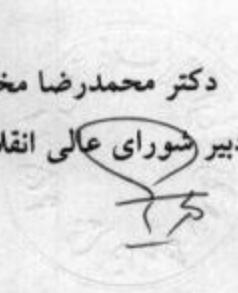 دکتر محمدرضا مخ
بیر شورای عالی انقلا